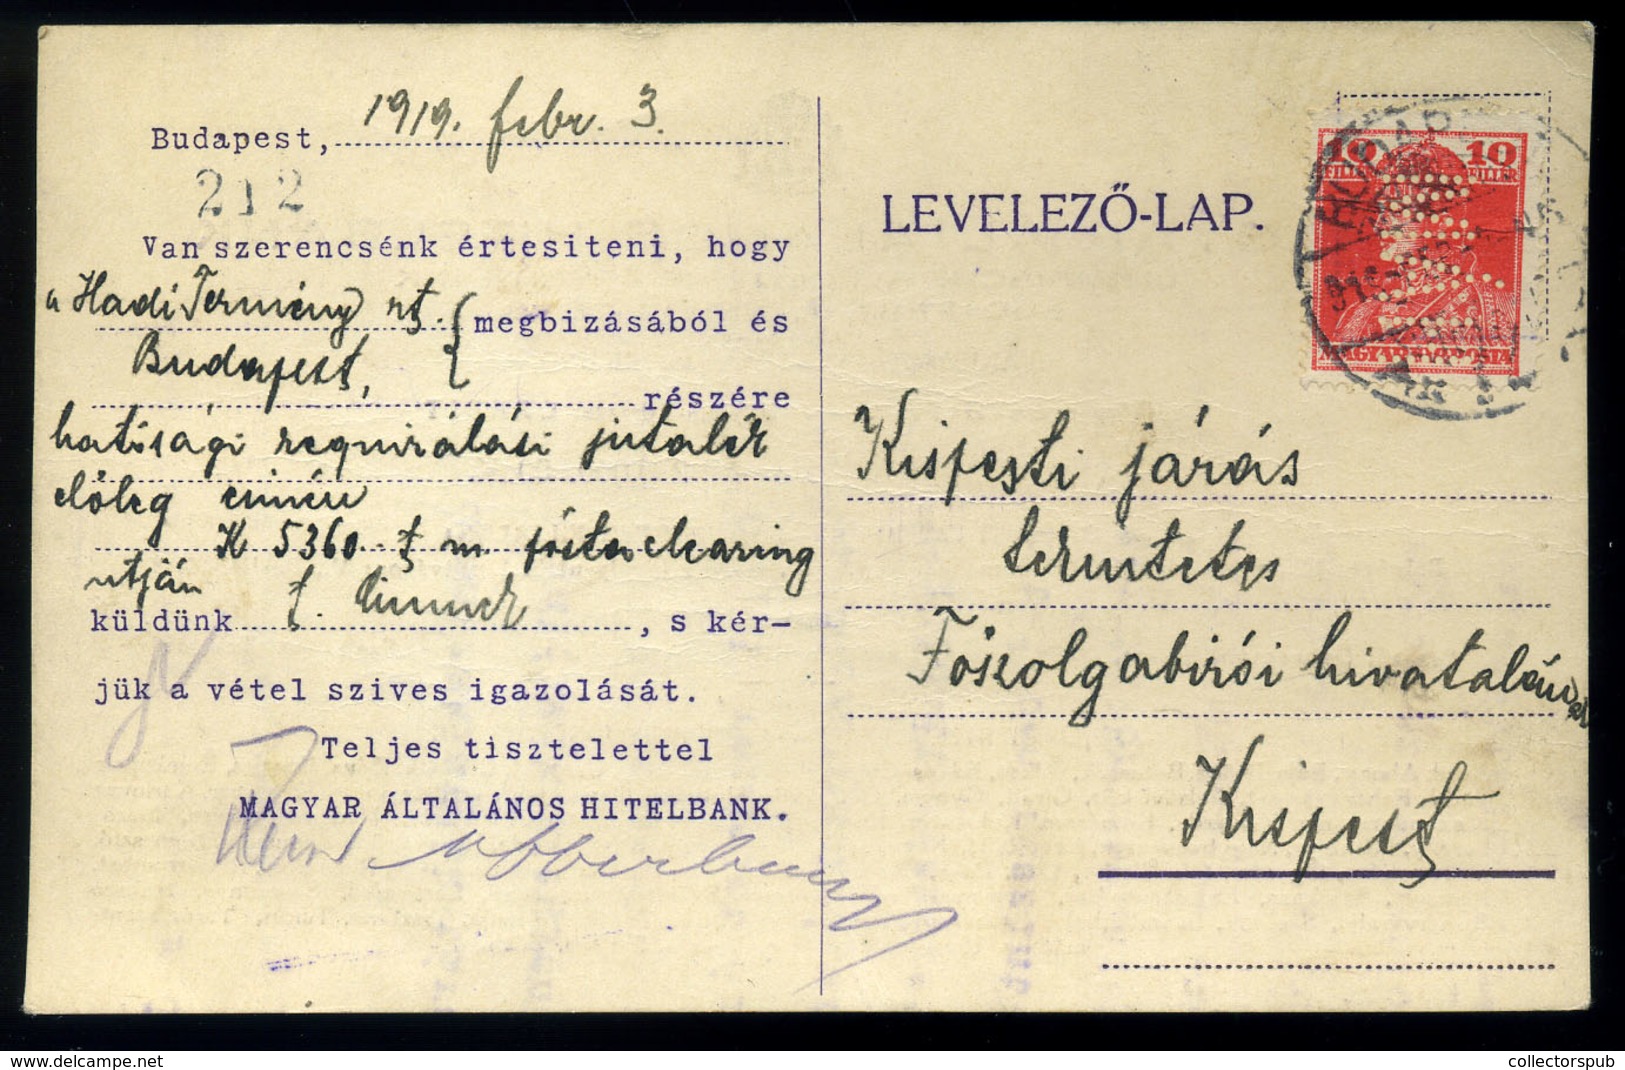 Budapest, 1919. febr. 3.
212
Van szerencsénk értesiteni, hogy
a Hadi Termény rt.
megbizásából és
Budapest,
részére
hatósági requirálási jutalék
előleg címén
K 5360 f m posta clearing
utján
küldünk f. , s kér-
jük a vétel szives igazolását.
Teljes tisztelettel
MAGYAR ÁLTALÁNOS HITELBANK.
LEVELEZŐ-LAP.
10 10
FILLÉR FILLÉR
MAGYAR POSTA
BUDAPEST
Kispesti járás
tekintetes
Főszolgabirói hivatalának
Kispest
collectorspub